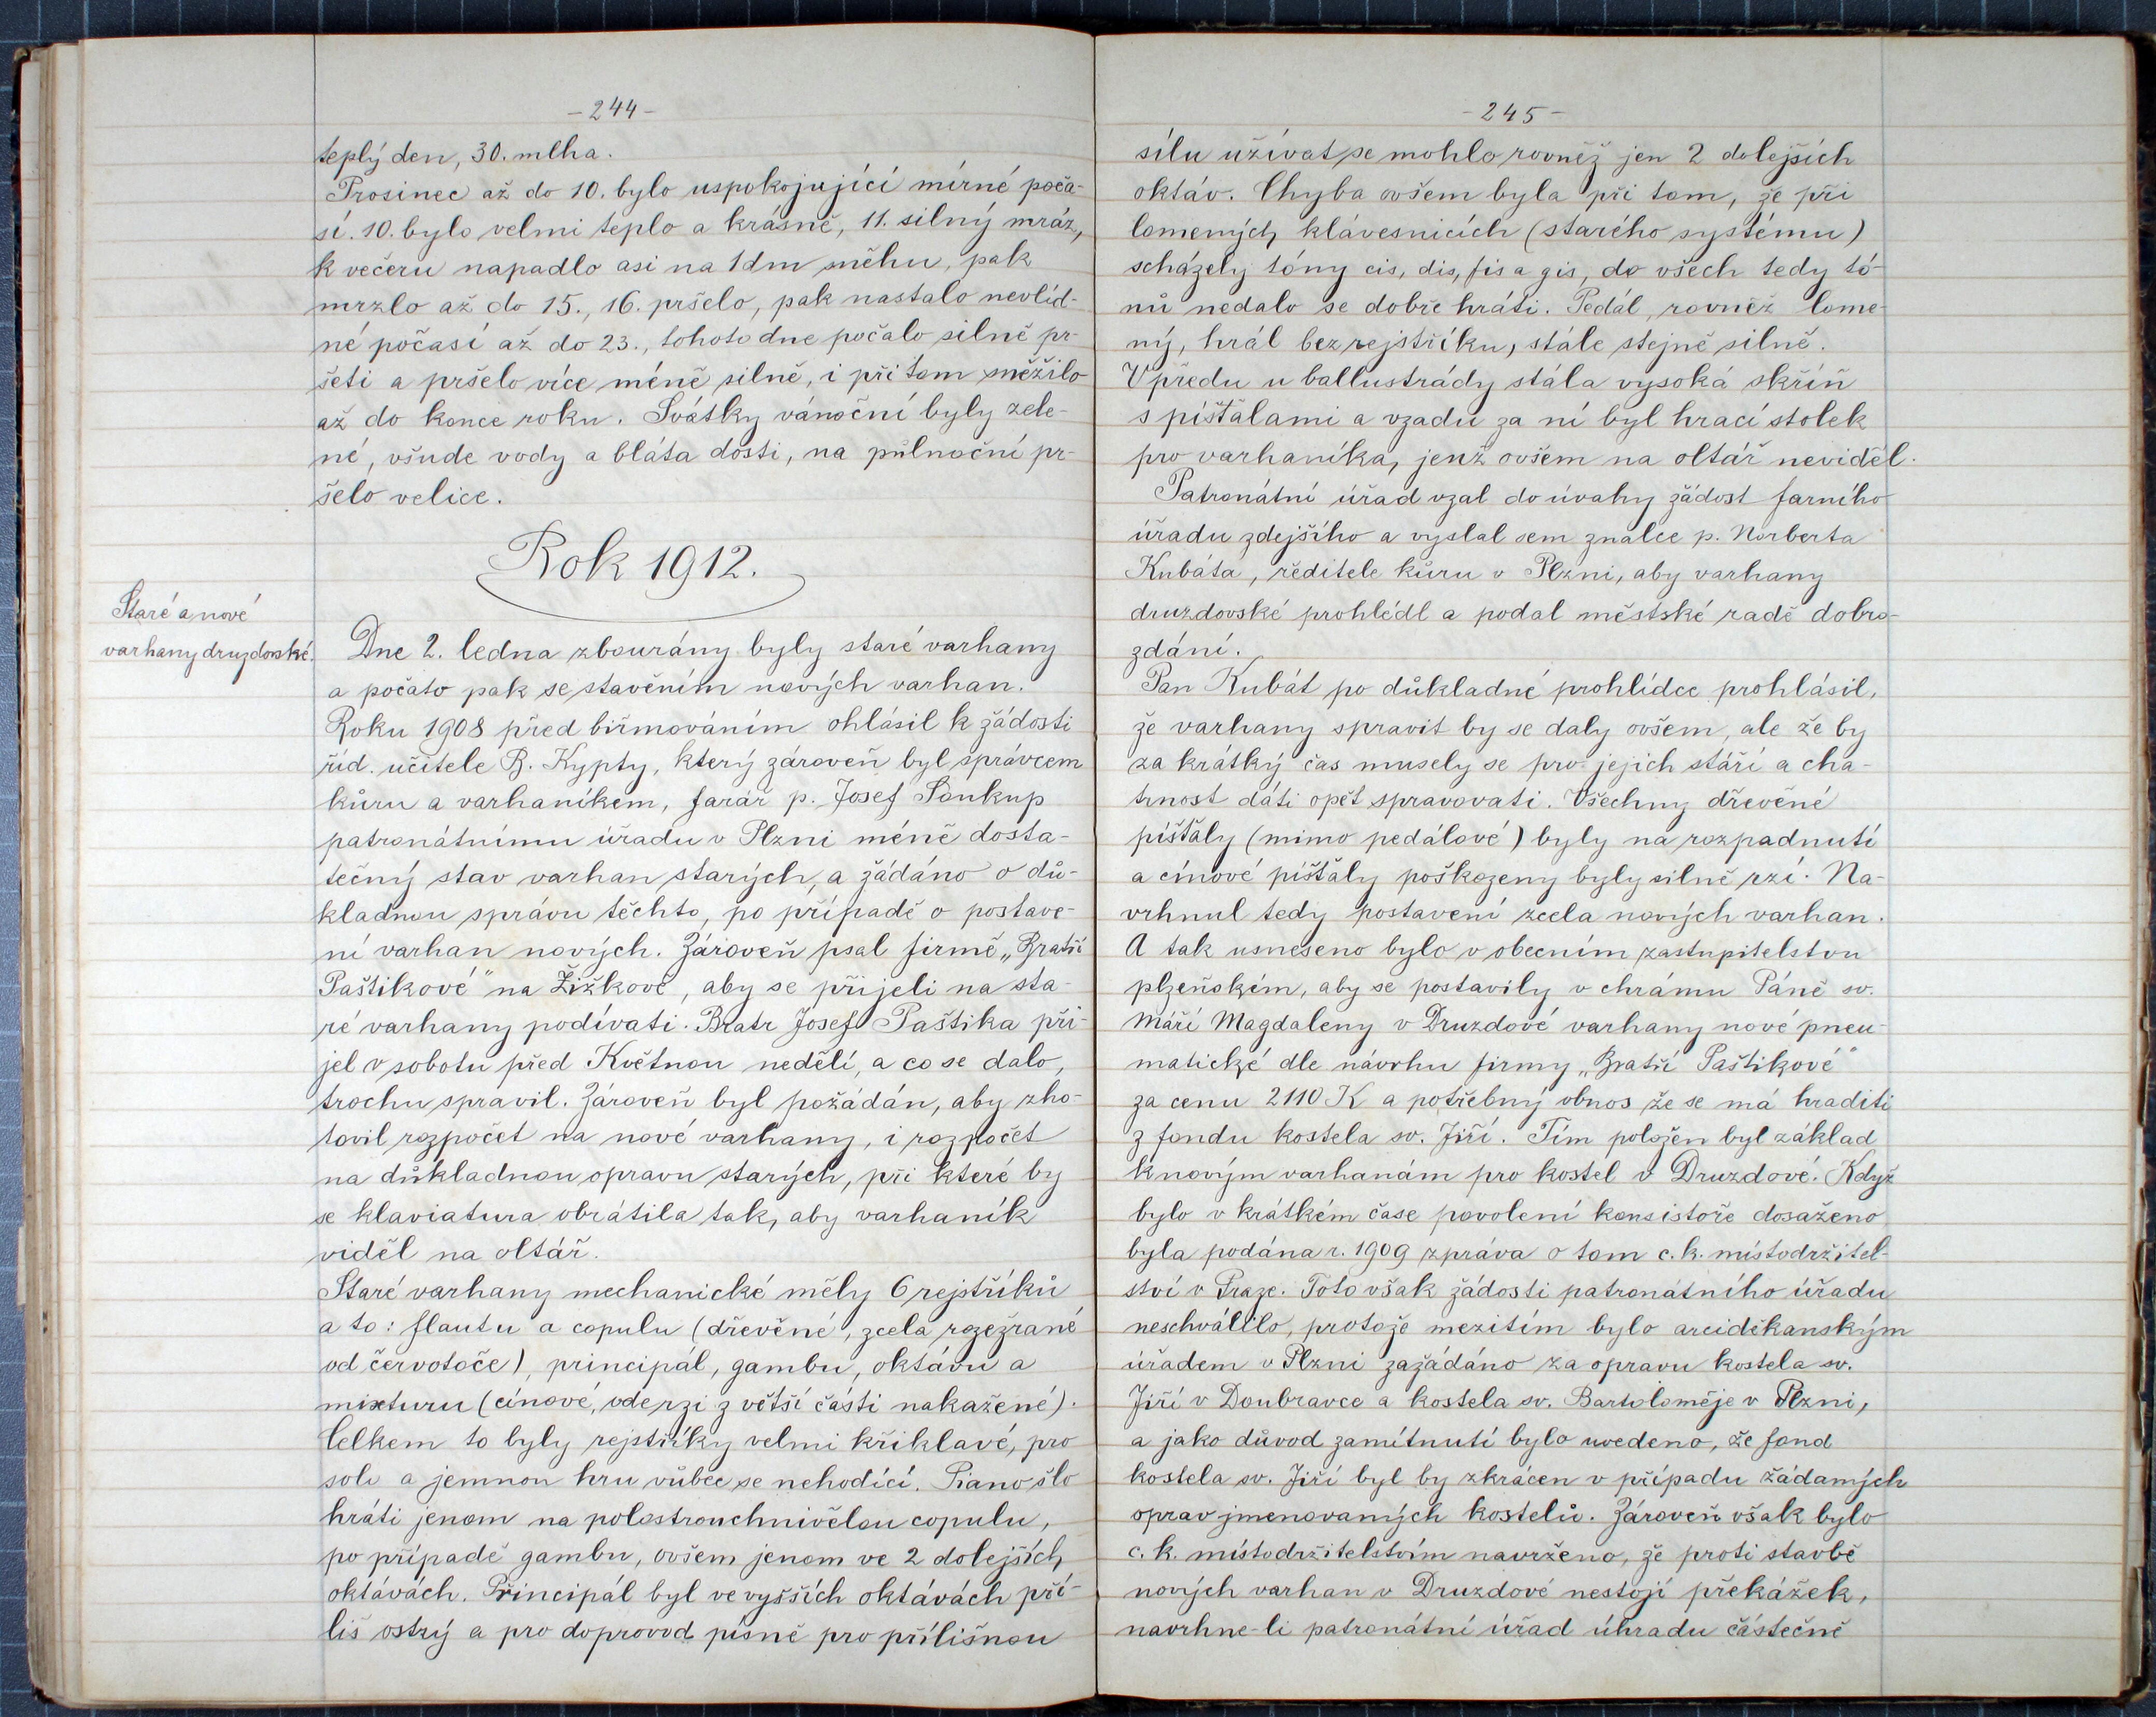 -244-
teplý den, 30. mlha.
Prosinec až do 10. bylo uspokojující mírné poča-
sí. 10. bylo velmi teplo a krásně, 11. silný mráz,
k večeru napadlo asi na 1 dm sněhu, pak
mrzlo až do 15., 16. pršelo, pak nastalo nevlíd-
né počasí až do 23., tohoto dne počalo silně pr-
šeti a pršelo více méně silně, i při tom sněžilo
až do konce roku. Svátky vánoční byly zele-
né, všude vody a bláta dosti, na půlnoční pr-
šelo velice.
Rok 1912.
Staré a nové
varhany druzdovské.
Dne 2. ledna zbourány byly staré varhany
a počato pak se stavěním nových varhan.
Roku 1908 před biřmováním ohlásil k žádosti
říd. učitele B. Kypty, který zároveň byl správcem
kůru a varhaníkem, farář p. Josef Soukup
patronátnímu úřadu v Plzni méně dosta-
tečný stav varhan starých, a žádáno o dů-
kladnou správu těchto, po případě o postave-
ní varhan nových. Zároveň psal firmě „Bratří
Paštikové" na Žižkově, aby se přijeli na sta-
ré varhany podívati. Bratr Josef Paštika při-
jel v sobotu před Květnou nedělí, a co se dalo,
trochu spravil. Zároveň byl požádán, aby zho-
tovil rozpočet na nové varhany, i rozpočet
na důkladnou opravu starých, při které by
se klaviatura obrátila tak, aby varhaník
viděl na oltář.
Staré varhany mechanické měly 6 rejstříků
a to: flautu a copulu (dřevěné, zcela rozežrané
od červotoče), principál, gambu, oktávu a
mixturu (cínové, ode rzi z větší části nakažené).
Celkem to byly rejstříky velmi křiklavé, pro
solo a jemnou hru vůbec se nehodící. Piano šlo
hráti jenom na polostrouchnivělou copulu,
po případě gambu, ovšem jenom ve 2 dolejších
oktávách. Principál byl ve vyšších oktávách pří-
liš ostrý a pro doprovod písně pro přílišnou
-245-
sílu užívat se mohlo rovněž jen 2 dolejších
oktáv. Chyba ovšem byla při tom, že při
lomených klávesnicích (starého systému)
scházely tóny cis, dis, fis a gis, do všech tedy tó-
nů nedalo se dobře hráti. Pedál, rovněž lome-
ný, hrál bez rejstříku, stále stejně silně.
Vpředu u ballustrády stála vysoká skříň
s píšťalami a vzadu za ní byl hrací stolek
pro varhaníka, jenž ovšem na oltář neviděl.
Patronátní úřad vzal do úvahy žádost farního
úřadu zdejšího a vyslal sem znalce p. Norberta
Kubáta, ředitele kůru v Plzni, aby varhany
druzdovské prohlédl a podal městské radě dobro-
zdání.
Pan Kubát po důkladné prohlídce prohlásil,
že varhany spravit by se daly ovšem, ale že by
za krátký čas musely se pro jejich stáří a cha-
trnost dáti opět spravovati. Všechny dřevěné
píšťaly (mimo pedálové) byly na rozpadnutí
a cínové píšťaly poškozeny byly silně rzí. Na-
vrhnul tedy postavení zcela nových varhan.
A tak usneseno bylo v obecním zastupitelstvu
plzeňském, aby se postavily v chrámu Páně sv.
Máří Magdaleny v Druzdové varhany nové pneu-
matické dle návrhu firmy „Bratří Paštikové"
za cenu 2110 K a potřebný obnos že se má hraditi
z fondu kostela sv. Jiří. Tím položen byl základ
k novým varhanám pro kostel v Druzdové. Když
bylo v krátkém čase povolení konsistoře dosaženo
byla podána r. 1909 zpráva o tom c. k. místodržitel-
ství v Praze. Toto však žádosti patronátního úřadu
neschválilo, protože mezitím bylo arciděkanským
úřadem v Plzni zažádáno za opravu kostela sv.
Jiří v Doubravce a kostela sv. Bartoloměje v Plzni,
a jako důvod zamítnutí bylo uvedeno, že fond
kostela sv. Jiří byl by zkrácen v případu žádaných
oprav jmenovaných kostelů. Zároveň však bylo
c. k. místodržitelstvím navrženo, že proti stavbě
nových varhan v Druzdové nestojí překážek,
navrhne-li patronátní úřad úhradu částečně